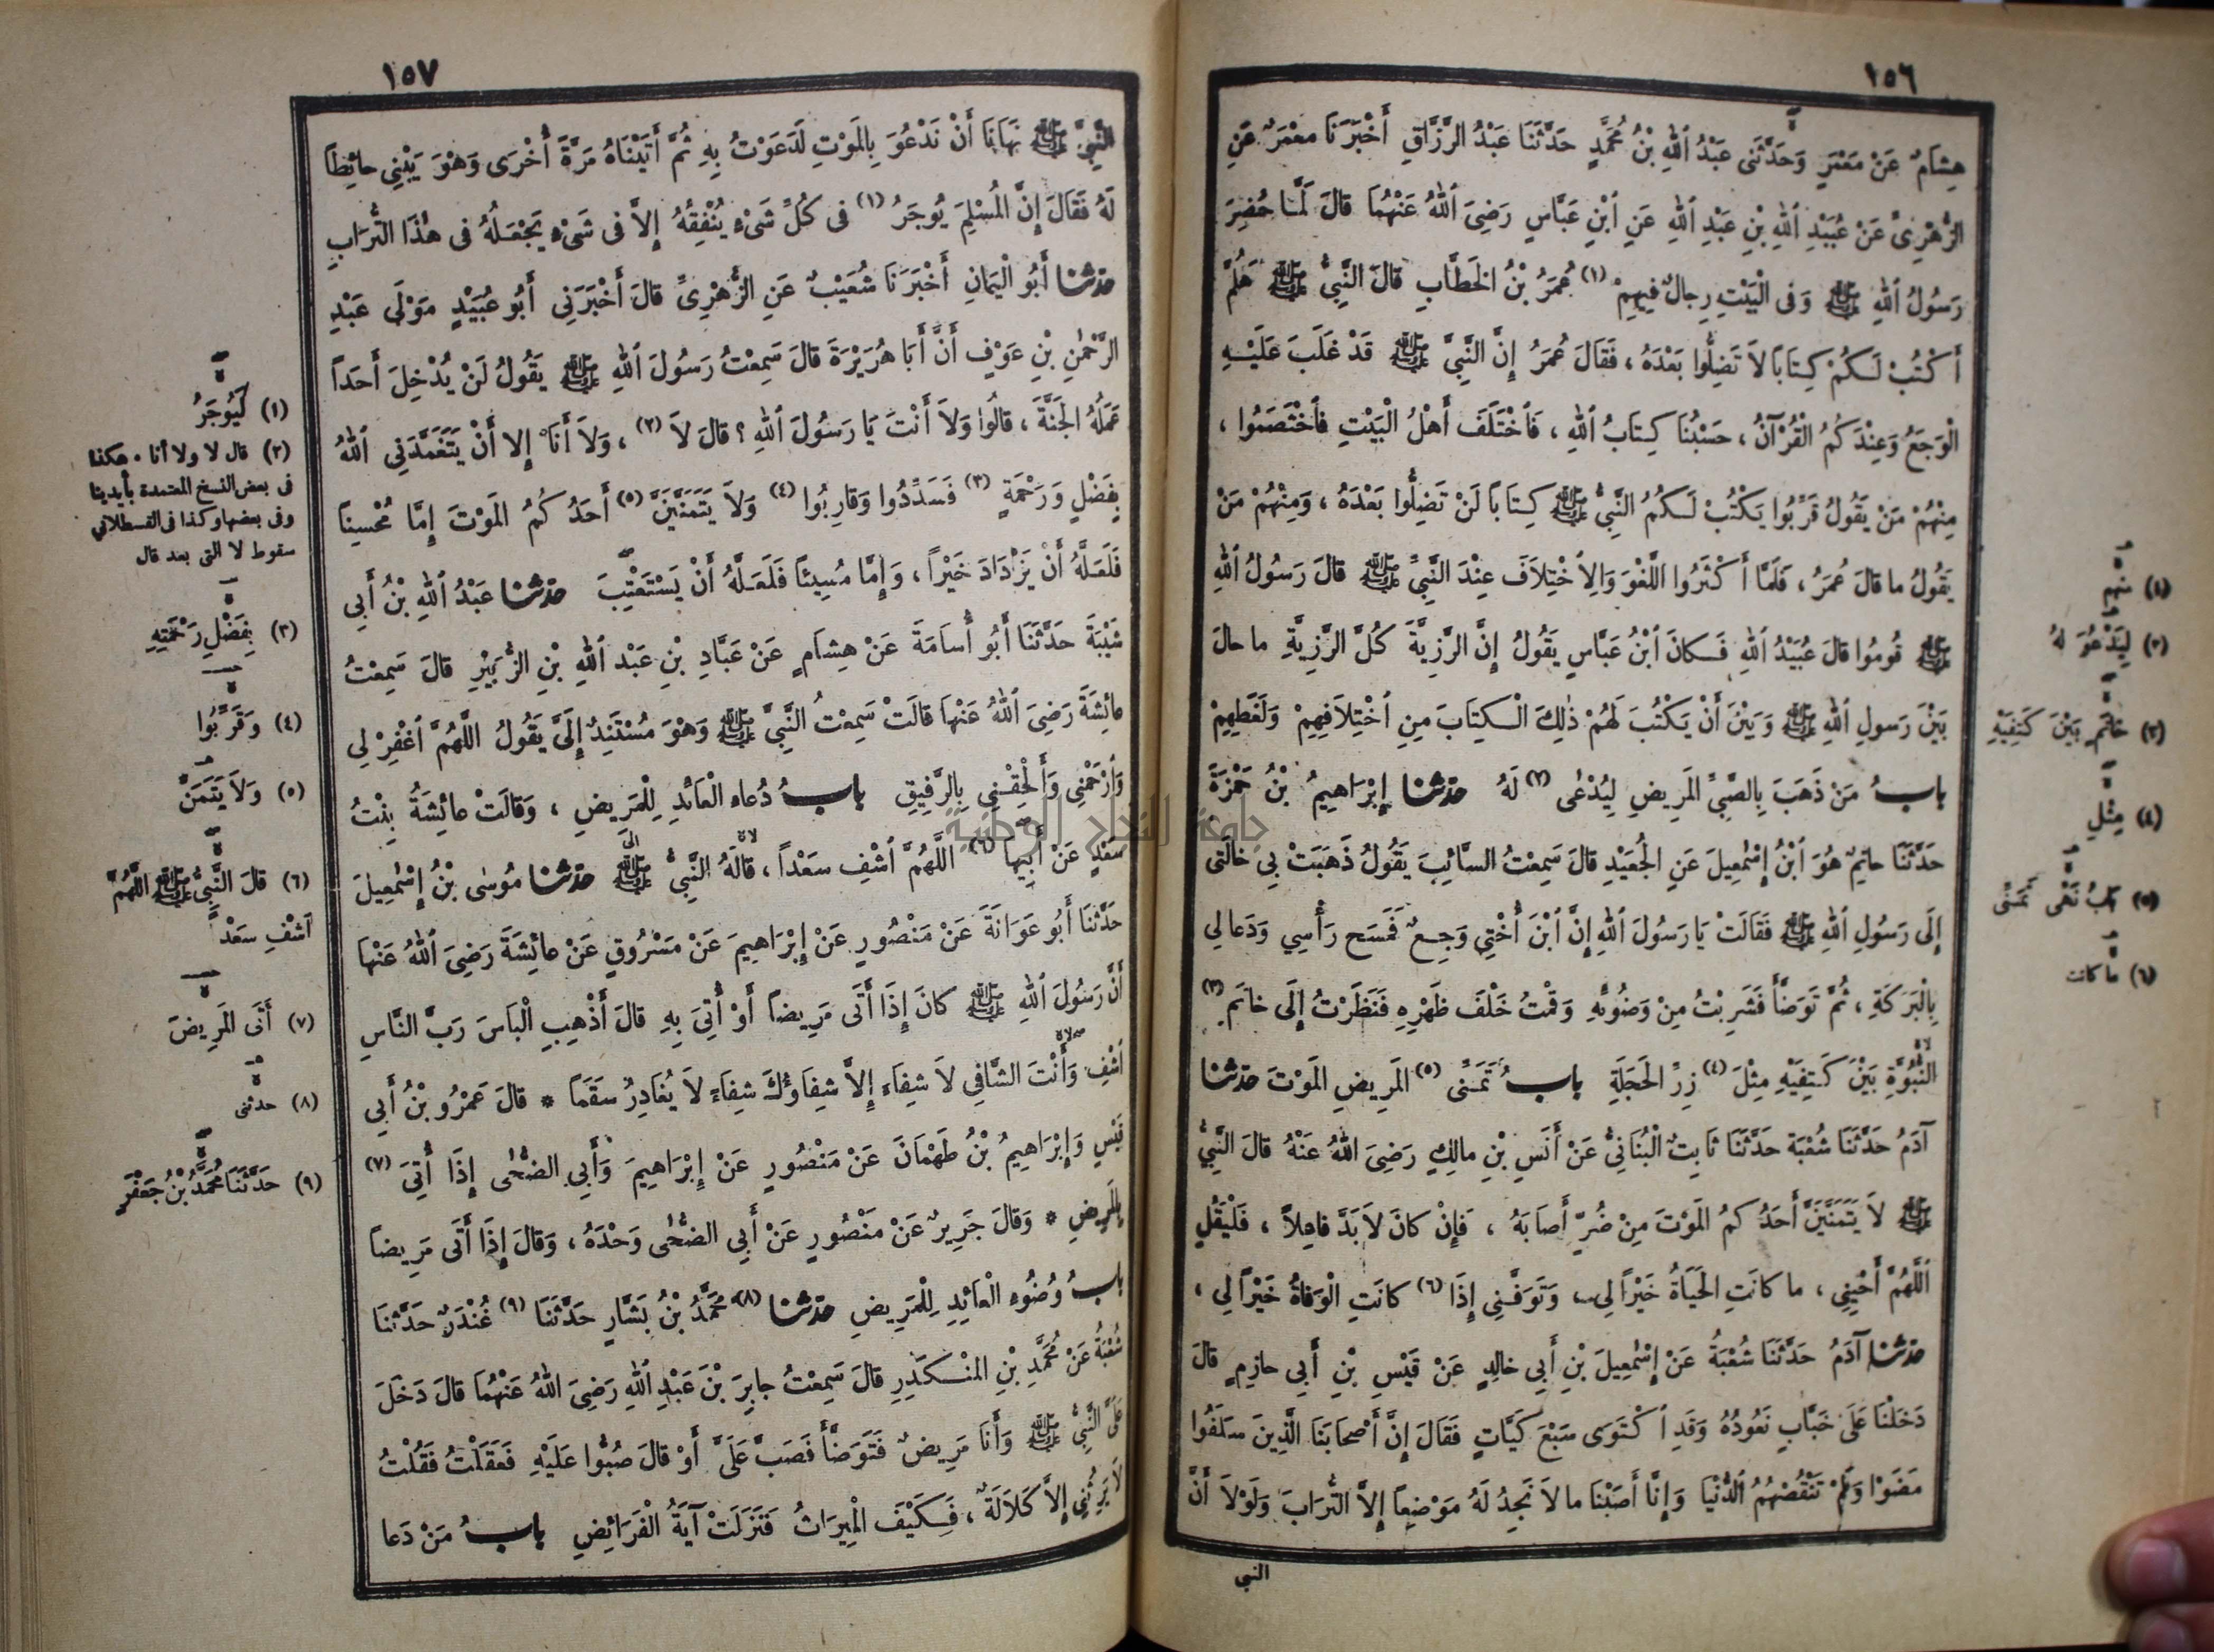 ١٥٦
هِشَامٌ عَنْ مَعْمَرٍ وَحَدَّثَنِى عَبْدُ ٱللهِ بْنُ مُحَمَّدٍ حَدَّثَنَا عَبْدُ الرَّزَّاقِ أَخْبَرَنَا مَعْمَرٌ عَنِ
الزُّهْرِىِّ عَنْ عُبَيْدِ ٱللهِ بْنِ عَبْدِ ٱللهِ عَنِ ٱبْنِ عَبَّاسٍ رَضِىَ ٱللهُ عَنْهُمَا قَالَ لَمَّا حُضِرَ
رَسُولُ ٱللهِ ﷺ وَفِى الْبَيْتِ رِجَالٌ فِيهِمْ (١) عُمَرُ بْنُ الخَطَّابِ قَالَ النَّبِىُّ ﷺ هَلُمَّ
أَكْتُبْ لَكُمْ كِتَابًا لاَ تَضِلُّوا بَعْدَهُ ، فَقَالَ عُمَرُ إِنَّ النَّبِىَّ ﷺ قَدْ غَلَبَ عَلَيْهِ
الْوَجَعُ وَعِنْدَكُمُ الْقُرْآنُ ، حَسْبُنَا كِتَابُ ٱللهِ ، فَٱخْتَلَفَ أَهْلُ الْبَيْتِ فَٱخْتَصَمُوا ،
مِنْهُمْ مَنْ يَقُولُ قَرِّبُوا يَكْتُبْ لَكُمُ النَّبِىُّ ﷺ كِتَابًا لَنْ تَضِلُّوا بَعْدَهُ ، وَمِنْهُمْ مَنْ
يَقُولُ ما قالَ عُمَرُ ، فَلَمَّا أَكْثَرُوا اللَّغْوَ وَالِٱخْتِلاَفَ عِنْدَ النَّبِىِّ ﷺ قَالَ رَسُولُ ٱللهِ
ﷺ قُومُوا قالَ عُبَيْدُ ٱللهِ فَكانَ ٱبْنُ عَبَّاسٍ يَقُولُ إِنَّ الرَّزِيَّةَ كُلَّ الرَّزِيَّةِ ما حالَ
بَيْنَ رَسولِ ٱللهِ ﷺ وَبَيْنَ أَنْ يَكْتُبَ لَهُمْ ذٰلِكَ الْكِتَابَ مِنِ ٱخْتِلاَفِهِمْ وَلَغَطِهِمْ
بابُ مَنْ ذَهَبَ بِالصَّبِىِّ المَرِيضِ لِيُدْعٰى (٢) لَهُ حدثنا إِبْرَاهِيمُ بْنُ حَمْزَةَ
حَدَّثَنَا حاتِمٌ هُوَ ٱبْنُ إِسْمٰعِيلَ عَنِ الجُعَيْدِ قالَ سَمِعْتُ السَّائِبَ يَقُولُ ذَهَبَتْ بِى خالَتِى
إِلَى رَسُولِ ٱللهِ ﷺ فَقَالَتْ يَا رَسُولَ ٱللهِ إِنَّ ٱبْنَ أُخْتِي وَجِعٌ فَمَسَحَ رَأْسِي وَدَعا لِي
بِالْبَرَكَةِ ، ثُمَّ تَوَضَّأَ فَشَرِبْتُ مِنْ وَضُوئِهِ وَقُمْتُ خَلْفَ ظَهْرِهِ فَنَظَرْتُ إِلَى خاتَمِ (٣)
النُّبُوَّةِ بَيْنَ كَتِفَيْهِ مِثْلَ (٤) زِرِّ الحَجَلَةِ بابُ تَمَنِّى (٥) المَرِيضِ المَوْتَ حدثنا
آدَمُ حَدَّثَنَا شُعْبَةُ حَدَّثَنَا ثَابِتٌ الْبُنَانِىُّ عَنْ أَنَسِ بْنِ مالِكٍ رَضِىَ ٱللهُ عَنْهُ قالَ النَّبِىُّ
ﷺ لاَ يَتَمَنَّيَنَّ أَحَدُكمُ المَوْتَ مِنْ ضُرٍّ أَصَابَهُ ، فَإِنْ كانَ لاَ بُدَّ فاعِلاً ، فَلْيَقُلِ
اللَّهُمَّ أَحْيِنِى ، ما كانَتِ الحَيَاةُ خَيْراً لِى ، وَتَوَفَّنِى إِذَا (٦) كانَتِ الْوَفاةُ خَيْراً لِى ،
حدثنا آدَمُ حَدَّثَنَا شُعْبَةُ عَنْ إِسْمٰعِيلَ بْنِ أَبِى خالِدٍ عَنْ قَيْسِ بْنِ أَبِى حازِمٍ قالَ
دَخَلْنَا عَلَى خَبَّابٍ نَعُودُهُ وَقَدِ ٱكْتَوَى سَبْعَ كَيَّاتٍ فَقَالَ إِنَّ أَصْحَابَنَا الَّذِينَ سَلَفُوا
مَضَوْا وَلَمْ تَنْقُصْهُمُ الدُّنْيَا وَإِنَّا أَصَبْنَا ما لاَ نَجِدُ لَهُ مَوْضِعاً إِلاَّ التُّرَابَ وَلَوْلاَ أَنَّ
النبى
(١) منهم
(٢) لِيَدْعُوَ لَهُ
(٣) خَاتَمٍ بَيْنَ كَتِفَيْهِ
(٤) مِثْلِ
(٥) بابُ نَهْىِ تَمَنِّى
(٦) ما كانت
١٥٧
النَّبِىَّ ﷺ نَهَانَا أَنْ نَدْعُوَ بِالمَوْتِ لَدَعَوْتُ بِهِ ثُمَّ أَتَيْنَاهُ مَرَّةً أُخْرَى وَهْوَ يَبْنِي حائِطاً
لَهُ فَقَالَ إِنَّ المُسْلِمَ يُوجَرُ (١) فى كُلِّ شَىْءٍ يُنْفِقُهُ إِلاَّ فى شَىْءٍ يَجْعَلُهُ فى هٰذَا التُّرَابِ
حدثنا أَبُو الْيَمَانِ أَخْبَرَنَا شُعَيْبٌ عَنِ الزُّهْرِىِّ قالَ أَخْبَرَنِى أَبُو عُبَيْدٍ مَوْلَى عَبْدِ
الرَّحْمٰنِ بْنِ عَوْفٍ أَنَّ أَبَا هُرَيْرَةَ قالَ سَمِعْتُ رَسُولَ ٱللهِ ﷺ يَقُولُ لَنْ يُدْخِلَ أَحَداً
عَمَلُهُ الجَنَّةَ ، قالُوا وَلاَ أَنْتَ يَا رَسُولَ ٱللهِ ؟ قالَ لاَ (٢) ، وَلاَ أَنَا إِلا أَنْ يَتَغَمَّدَنِى ٱللهُ
بِفَضْلٍ وَرَحْمَةٍ (٣) فَسَدِّدُوا وَقارِبُوا (٤) وَلاَ يَتَمَنَّيَنَّ (٥) أَحَدُكُمُ المَوْتَ إِمَّا مُحْسِناً
فَلَعَلَّهُ أَنْ يَزْدَادَ خَيْراً ، وَإِمَّا مُسِيئاً فَلَعَلَّهُ أَنْ يَسْتَعْتِبَ حدثنا عَبْدُ ٱللهِ بْنُ أَبِى
شَيْبَةَ حَدَّثَنَا أَبُو أُسَامَةَ عَنْ هِشَامٍ عَنْ عَبَّادِ بْنِ عَبْدِ ٱللهِ بْنِ الزُّبَيْرِ قالَ سَمِعْتُ
عائِشَةَ رَضِىَ ٱللهُ عَنْهَا قالَتْ سَمِعْتُ النَّبِىَّ ﷺ وَهْوَ مُسْتَنِدٌ إِلَىَّ يَقُولُ اللَّهُمَّ ٱغْفِرْ لِى
وَٱرْحَمْنِى وَأَلْحِقْنِى بِالرَّفِيقِ بابُ دُعاءِ الْعَائِدِ لِلْمَرِيضِ ، وَقالَتْ عائِشَةُ بِنْتُ
سَعْدٍ عَنْ أَبِيهَا (٦) اللَّهُمَّ ٱشْفِ سَعْداً ، قالَهُ النَّبِىُّ ﷺ حدثنا مُوسٰى بْنُ إِسْمٰعِيلَ
حَدَّثَنَا أَبُو عَوَانَةَ عَنْ مَنْصُورٍ عَنْ إِبْرَاهِيمَ عَنْ مَسْرُوقٍ عَنْ عائِشَةَ رَضِىَ ٱللهُ عَنْهَا
أَنَّ رَسُولَ ٱللهِ ﷺ كانَ إِذَا أَتَى مَرِيضاً أَوْ أُتِىَ بِهِ قالَ أَذْهِبِ الْبَاسَ رَبَّ النَّاسِ
ٱشْفِ وَأَنْتَ الشَّافِى لاَ شِفَاءَ إِلاَّ شِفَاؤُكَ شِفَاءً لاَ يُغَادِرُ سَقَماً * قالَ عَمْرُو بْنُ أَبِى
قَيْسٍ وَإِبْرَاهِيمُ بْنُ طَهْمَانَ عَنْ مَنْصُورٍ عَنْ إِبْرَاهِيمَ وَأَبِى الضُّحٰى إِذَا أُتِىَ (٧)
بِالمَرِيضِ * وَقالَ جَرِيرٌ عَنْ مَنْصُورٍ عَنْ أَبِى الضُّحٰى وَحْدَهُ ، وَقالَ إِذَا أَتَى مَرِيضاً
بابُ وُضُوءِ الْعَائِدِ لِلْمَرِيضِ حدثنا (٨) مُحَمَّدُ بْنُ بَشَّارٍ حَدَّثَنَا (٩) غُنْدَرٌ حَدَّثَنَا
شُعْبَةُ عَنْ مُحَمَّدِ بْنِ المنْكَدِرِ قالَ سَمِعْتُ جابِرَ بْنَ عَبْدِ ٱللهِ رَضِىَ ٱللهُ عَنْهُمَا قالَ دَخَلَ
عَلَىَّ النَّبِىُّ ﷺ وَأَنَا مَرِيضٌ فَتَوَضَّأَ فَصَبَّ عَلَىَّ أَوْ قالَ صُبُّوا عَلَيْهِ فَعَقَلْتُ فَقُلْتُ
لاَ يَرِثُنِى إِلاَّ كَلاَلَةٌ ، فَكَيْفَ الْمِيرَاثُ فَنَزَلَتْ آيَةُ الْفَرَائِضِ بابُ مَنْ دَعا
(١) لَيُوجَرُ
(٢) قال لا ولا أنا . هكذا
فى بعض النسخ المعتمدة بأيدينا
وفى بعضها وكذا فى القسطلانى
سقوط لا التى بعد قال
(٣) بِفَضْلِ رَحْمَتِهِ
(٤) وَقَرِّبُوا
(٥) وَلاَ يَتَمَنَّ
(٦) قالَ النَّبِىُّ ﷺ اللَّهُمَّ
ٱشْفِ سَعْداً
(٧) أَتَى المَرِيضَ
(٨) حدثنى
(٩) حَدَّثَنَا مُحَمَّدُ بْنُ جَعْفَرٍ
جامعة النجاح الوطنية